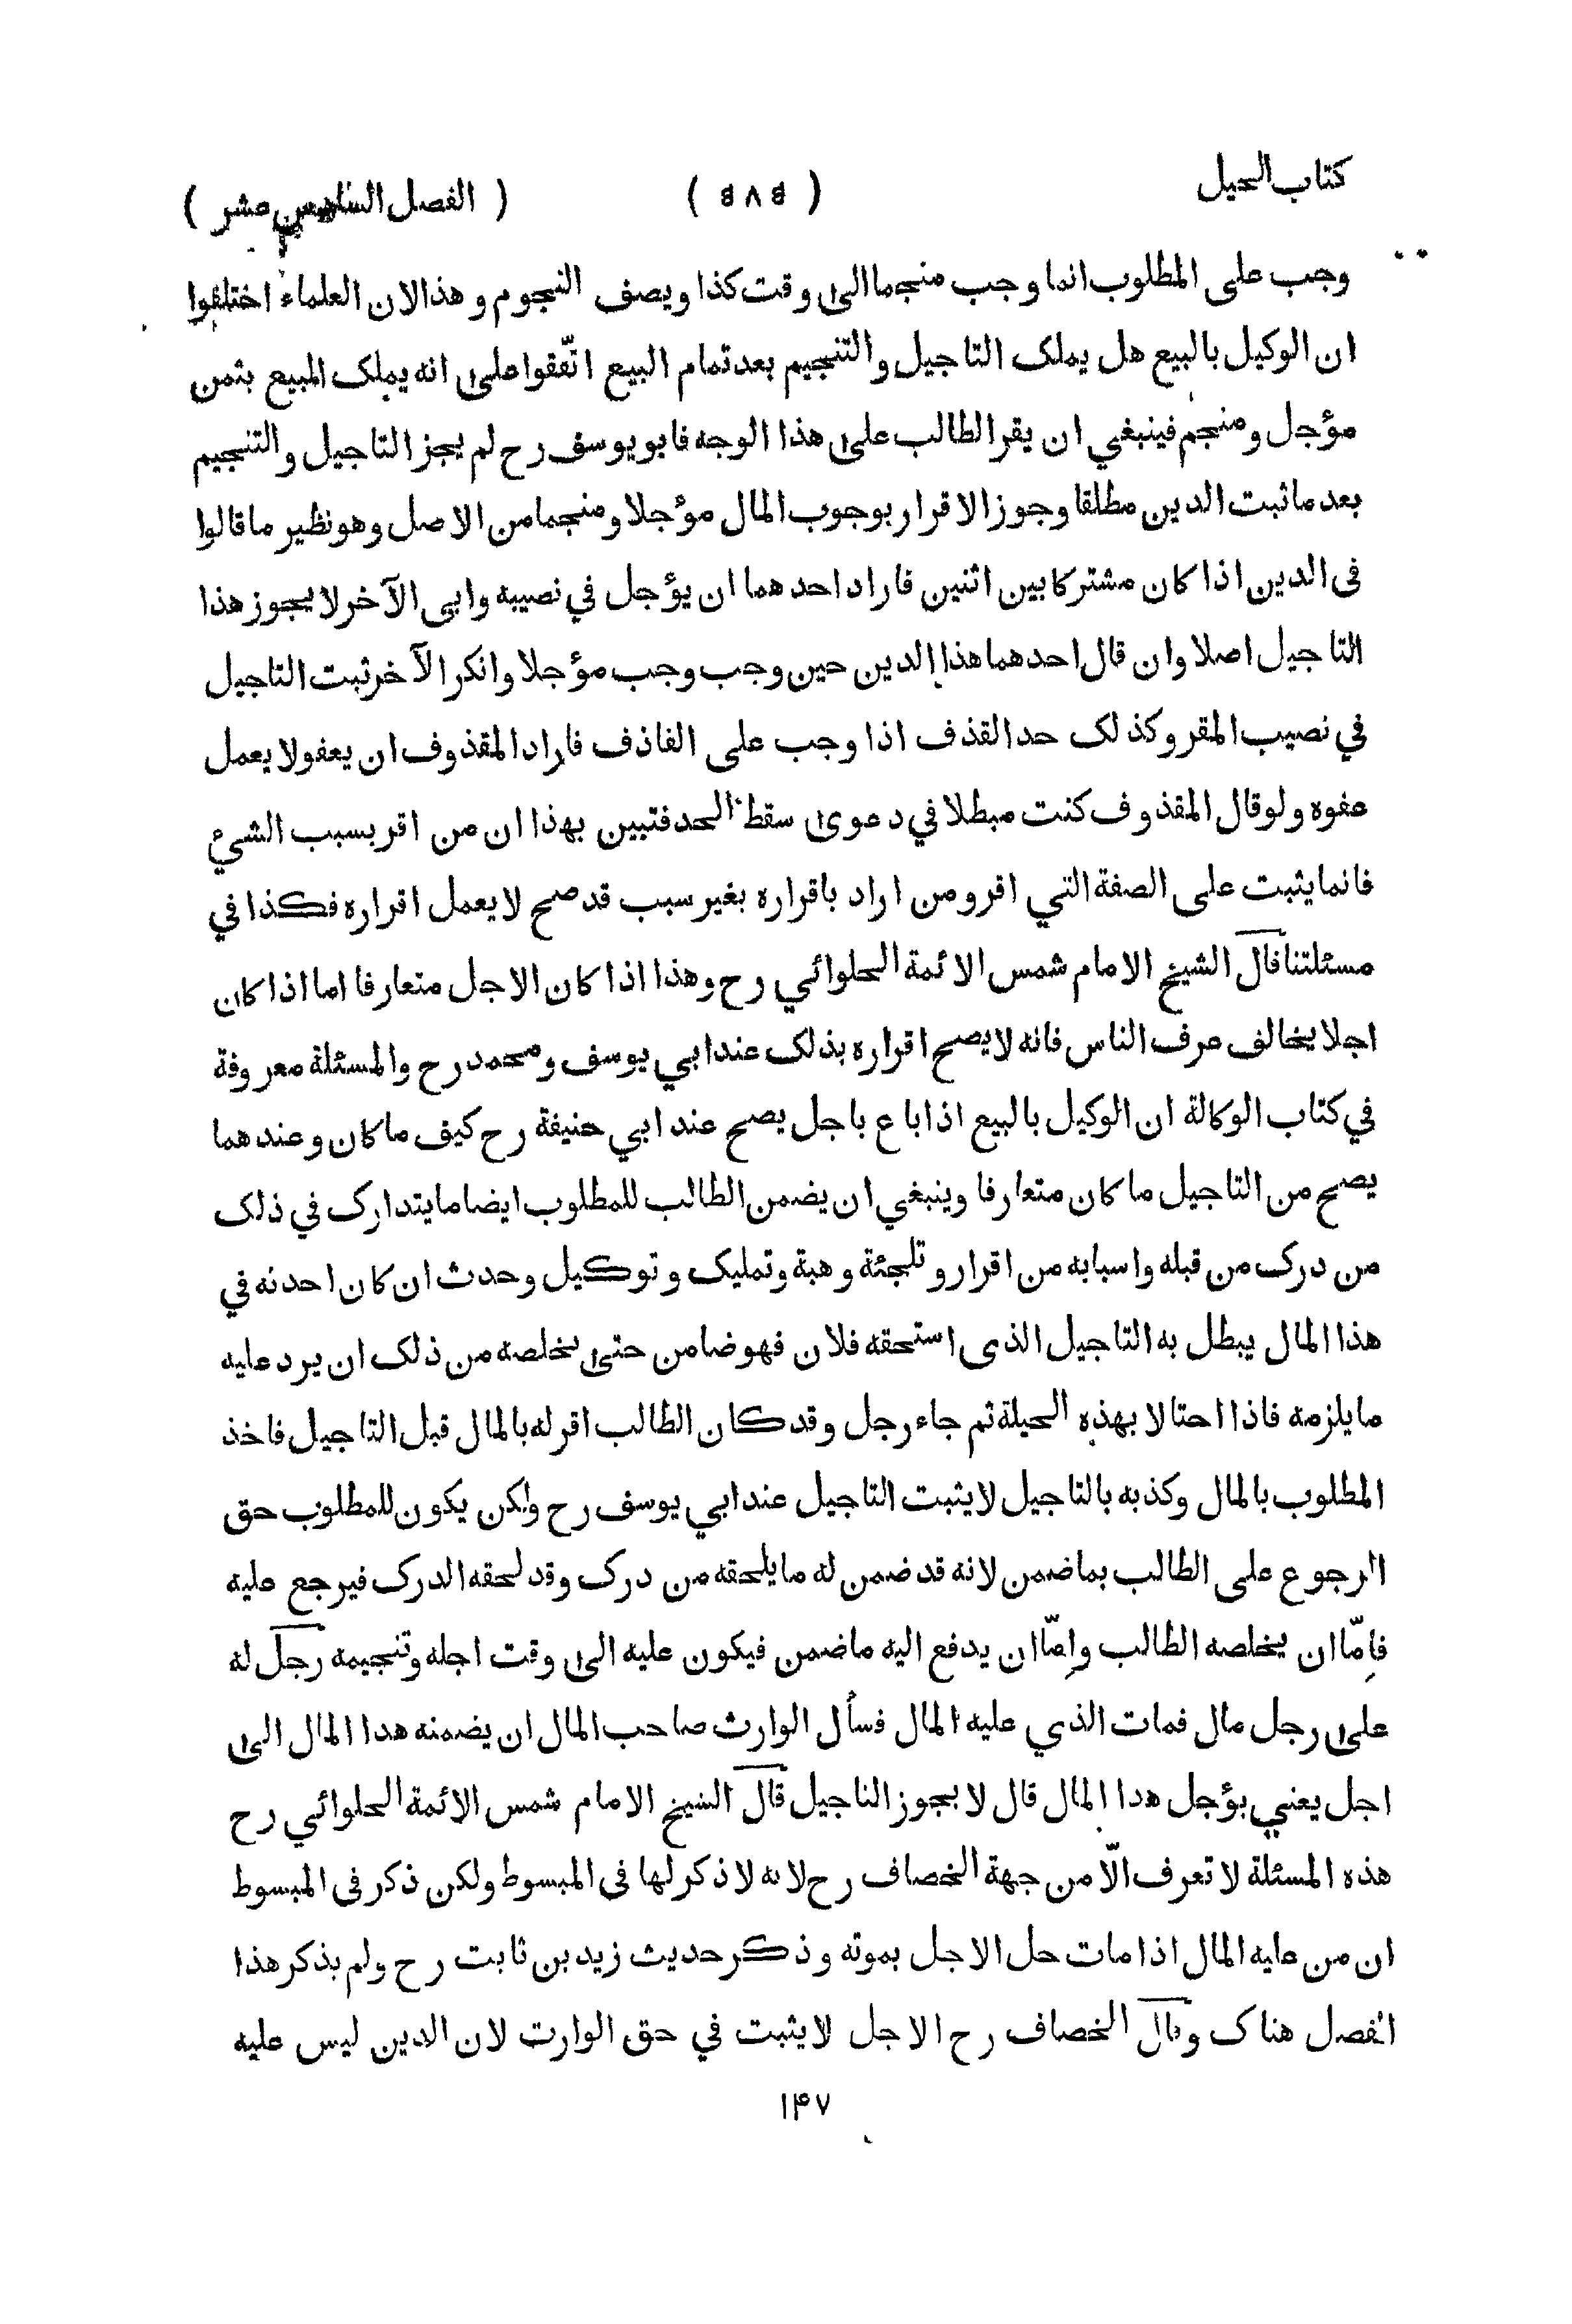 كتاب الحيل ( ٥٨٥ ) ( الفصل السادس عشر )
وجب على المطلوب انما وجب منجما الى وقت كذا ويصف النجوم وهذا لان العلماء اختلفوا
ان الوكيل بالبيع هل يملك التاجيل والتنجيم بعد تمام البيع اتّفقوا على انه يملك المبيع بثمن
مؤجل ومنجم فينبغي ان يقر الطالب على هذا الوجه فابو يوسف رح لم يجز التاجيل والتنجيم
بعد ما ثبت الدين مطلقا وجوز الاقرار بوجوب المال مؤجلا ومنجما من الاصل وهو نظير ما قالوا
فى الدين اذا كان مشتركا بين اثنين فاراد احدهما ان يؤجل في نصيبه وابى الآخر لا يجوز هذا
التاجيل اصلا وان قال احدهما هذا الدين حين وجب وجب مؤجلا وانكر الآخر ثبت التاجيل
في نصيب المقر وكذلك حد القذف اذا وجب على القاذف فاراد المقذوف ان يعفو لا يعمل
عفوه ولو قال المقذوف كنت مبطلا في دعوى سقط الحد فتبين بهذا ان من اقر بسبب الشيء
فانما يثبت على الصفة التي اقر ومن اراد باقراره بغير سبب قد صح لا يعمل اقراره فكذا في
مسئلتنا قال الشيخ الامام شمس الائمة الحلوائي رح وهذا اذا كان الاجل متعارفا اما اذا كان
اجلا يخالف عرف الناس فانه لا يصح اقراره بذلك عند ابي يوسف ومحمد رح والمسئلة معروفة
في كتاب الوكالة ان الوكيل بالبيع اذا باع باجل يصح عند ابي حنيفة رح كيف ما كان وعندهما
يصح من التاجيل ما كان متعارفا وينبغي ان يضمن الطالب للمطلوب ايضا ما يتدارك في ذلك
من درك من قبله واسبابه من اقرار وتلجئة وهبة وتمليك وتوكيل وحدث ان كان احدثه في
هذا المال يبطل به التاجيل الذى استحقه فلان فهو ضامن حتى يخلصه من ذلك ان يرد عليه
ما يلزمه فاذا احتالا بهذه الحيلة ثم جاء رجل وقد كان الطالب اقر له بالمال قبل التاجيل فاخذ
المطلوب بالمال وكذبه بالتاجيل لا يثبت التاجيل عند ابي يوسف رح ولكن يكون للمطلوب حق
الرجوع على الطالب بما ضمن لانه قد ضمن له ما يلحقه من درك وقد لحقه الدرك فيرجع عليه
فاِمّا ان يخلصه الطالب واِمّا ان يدفع اليه ما ضمن فيكون عليه الى وقت اجله وتنجيمه رجل له
على رجل مال فمات الذي عليه المال فسأل الوارث صاحب المال ان يضمنه هذا المال الى
اجل يعني يؤجل هذا المال قال لا يجوز التاجيل قال الشيخ الامام شمس الائمة الحلوائي رح
هذه المسئلة لا تعرف الّا من جهة الخصاف رح لانه لا ذكر لها فى المبسوط ولكن ذكر فى المبسوط
ان من عليه المال اذا مات حل الاجل بموته وذكر حديث زيد بن ثابت رح ولم يذكر هذا
الفصل هناك وقال الخصاف رح الاجل لا يثبت في حق الوارث لان الدين ليس عليه
١۴٧